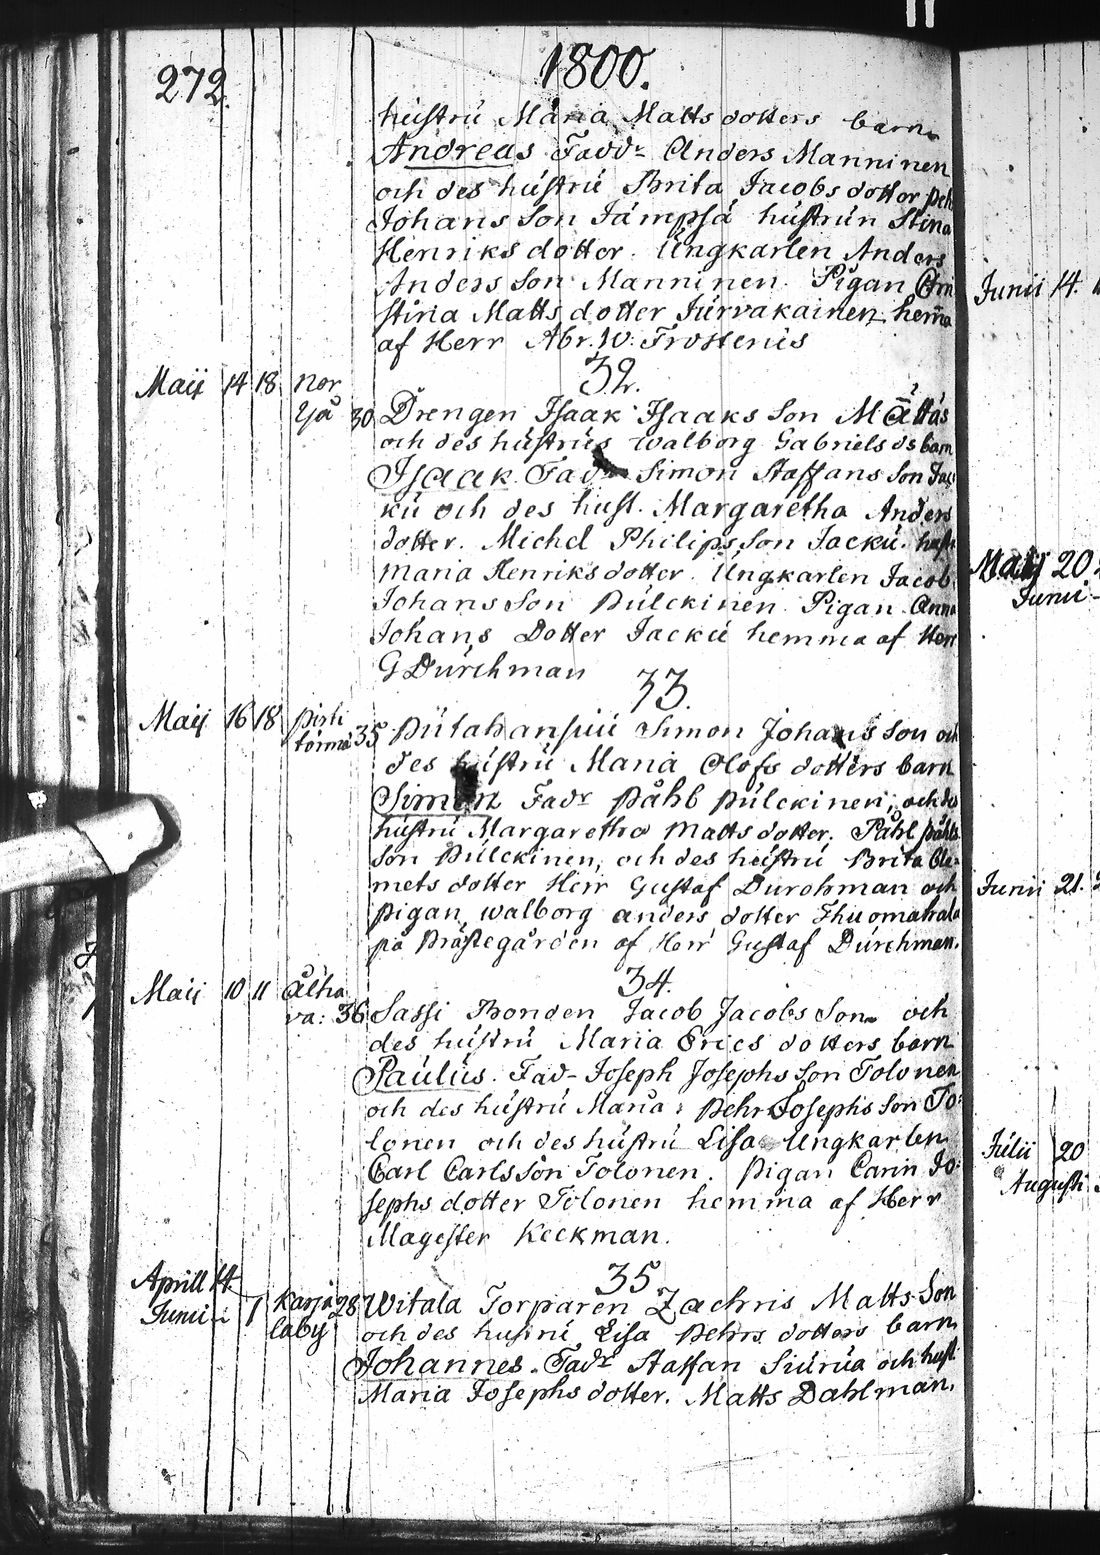 272.
1800.
hustru Maria Mattsdotters barn
Andreas Fadd^r Anders Manninen
och des hustru Brita Jacobsdotter Peh
Johans Son Jämpsä hustrun Stina
Henriksdotter. Ungkarlen Anders
Anders Son Manninen. Pigan Chri
stina Mattsdotter Jurvakainen hema
af Herr Abr. W: Frosterus
32.
Maij 14 18 Nor
sjå 30 Drengen Isaak Isaaks Son Mättäs
och des hustrus Walborg Gabriels ds barn
Isaak. Fad^r Simon Staffans Son Jac
ku och des hust. Margaretha Anders
dotter. Michel Philips Son Jacku. hust
Maria Henriksdotter. Ungkarlen Jacob
Johans Son Pulckinen. Pigan Anna
Johans Dotter Jacku hemma af Herr
G Durchman
33.
Maij 16 18 Pisti
törmä 35 Simon Johans Son och
des hustru Maria Olofs dotters barn
Simon Fad^r Påhl Pulckinen, och des
hustru Margaretha Mattsdotter, Påhl Påhls
Son Pulckinen, och des hustru Brita Cle-
mets dotter Herr Gustaf Durchman och
Pigan, Walborg anders dotter
på Prästegården af Herr Gustaf Durchman.
34.
Maij 10 11 Alha
va: 36 Sassi Bonden Jacob Jacobs Son och
des hustru Maria Erics dotters barn
Paulus. Fad- Joseph Josephs Son Tolonen
och des hustru Maria: Pehr Josephs Son To-
lonen och des hustru Lisa Ungkarlen
Carl Carls Son Tolonen. Pigan Carin Jo-
sephs dotter Tolonen hemma af Herr
Magister Keckman.
35
Aprill 14
Junii 1 Karja
laby 28 Witala Torparen Zachris Matts Son
och des hustru Lisa Pehrs dotters barn
Johannes. Fad^r Staffan Siurua och hust
Maria Josephs dotter. Matts Dahlman.
Junii 14.
Maij 20
Junii
Junii 21.
Julii 20
Augusti